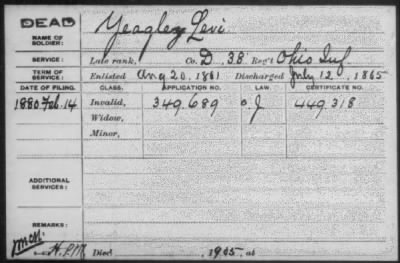 DEAD
NAME OF SOLDIER: Yeagley Levi
SERVICE: Late rank, Co. D. 38 Reg't Ohio Inf.
TERM OF SERVICE: Enlisted Aug 20, 1861 Discharged July 12, 1865
DATE OF FILING. CLASS. APPLICATION NO. LAW. CERTIFICATE NO.
1880 Feb. 14 Invalid, 349.689 J 449.318
Widow,
Minor,
ADDITIONAL SERVICES:
REMARKS:
Died 1905, at